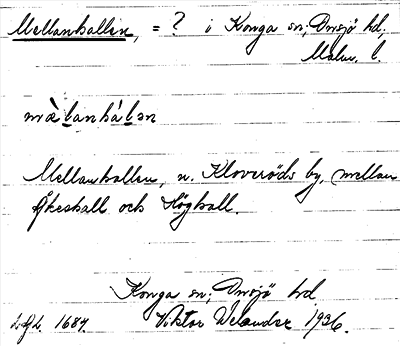 Mellanhallen, = ? i Konga sn; Onsjö hd,
Malm. l.
mὲlanhálən
Mellanhallen, n. Kloveröds by, mellan
Åkeshall och Höghall.
Konga sn; Onsjö hd.
L.A.L. 1687. Viktor Welander 1936.